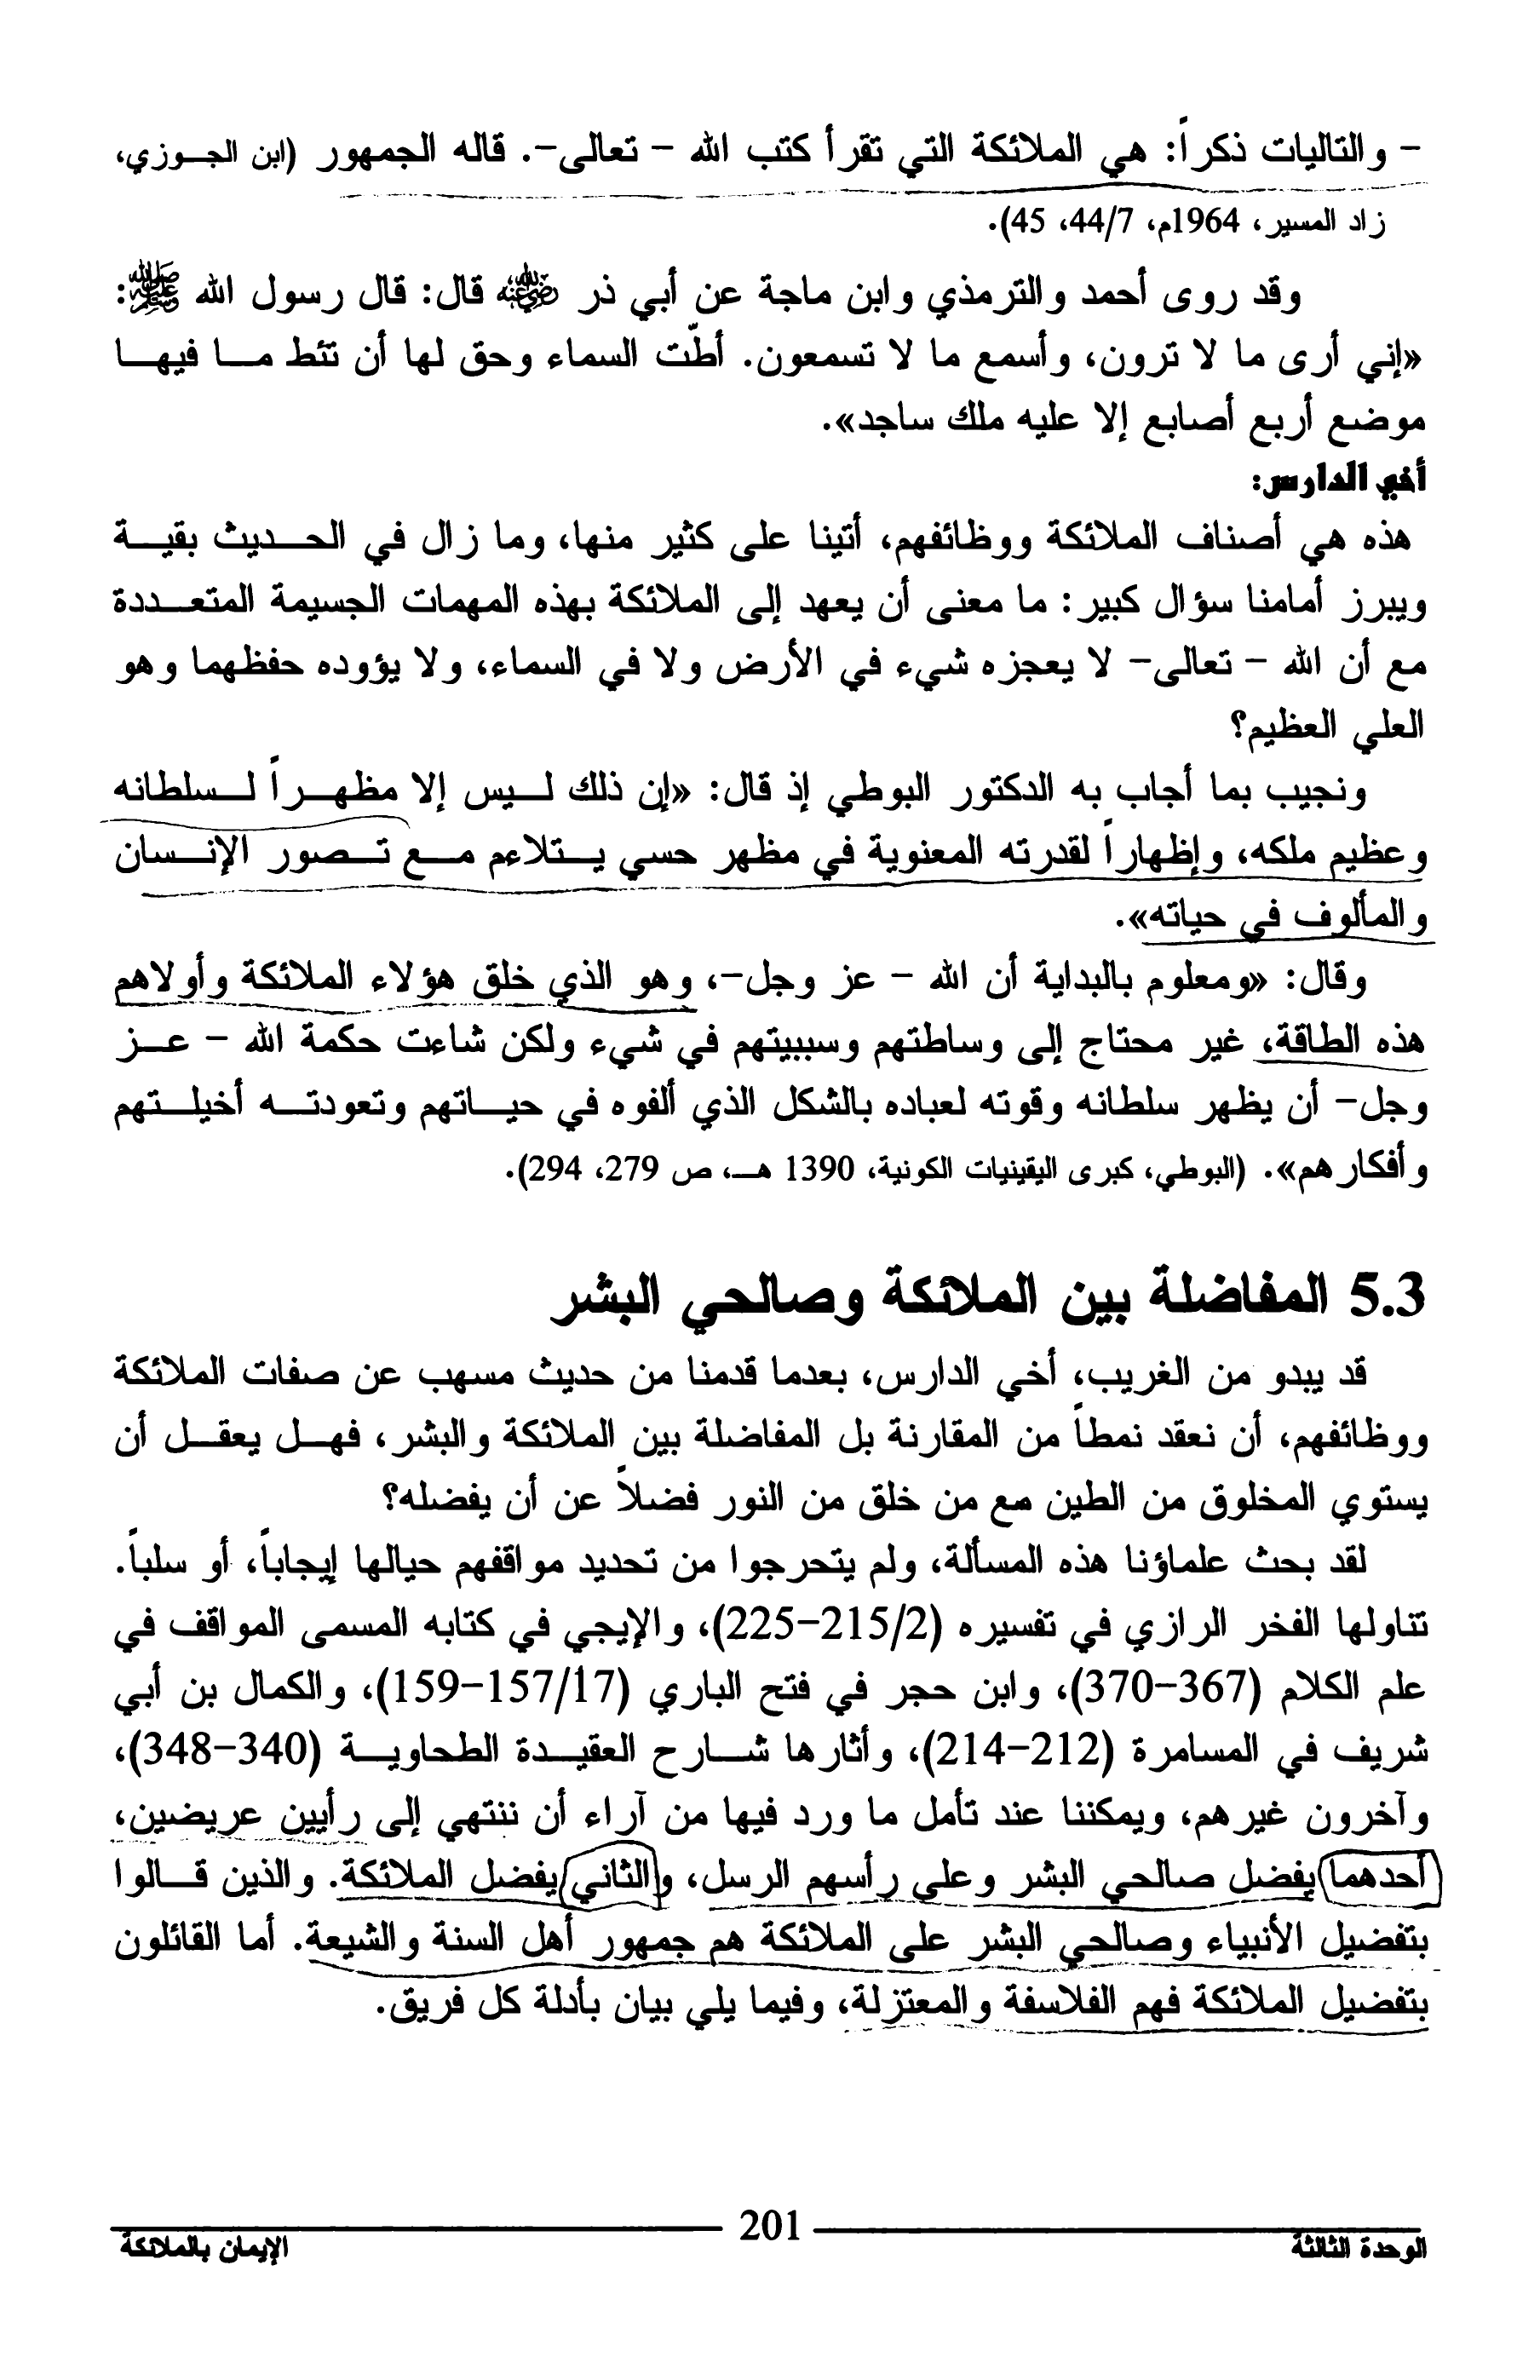 - والتاليات ذكراً: هي الملائكة التي تقرأ كتب الله - تعالى-. قاله الجمهور (ابن الجـوزي،
زاد المسير، 1964م، 44/7، 45).
وقد روى أحمد والترمذي وابن ماجة عن أبي ذر رضي الله عنه قال: قال رسول الله ﷺ:
«إني أرى ما لا ترون، وأسمع ما لا تسمعون. أطّت السماء وحق لها أن تئط مـا فيهـا
موضع أربع أصابع إلا عليه ملك ساجد».
أخي الدارس:
هذه هي أصناف الملائكة ووظائفهم، أتينا على كثير منها، وما زال في الحـديث بقيـة
ويبرز أمامنا سؤال كبير: ما معنى أن يعهد إلى الملائكة بهذه المهمات الجسيمة المتعـددة
مع أن الله - تعالى- لا يعجزه شيء في الأرض ولا في السماء، ولا يؤوده حفظهما وهو
العلي العظيم؟
ونجيب بما أجاب به الدكتور البوطي إذ قال: «إن ذلك لـيس إلا مظهـراً لـسلطانه
وعظيم ملكه، وإظهاراً لقدرته المعنوية في مظهر حسي يـتلاءم مـع تـصور الإنـسان
والمألوف في حياته».
وقال: «ومعلوم بالبداية أن الله - عز وجل-، وهو الذي خلق هؤلاء الملائكة وأولاهم
هذه الطاقة، غير محتاج إلى وساطتهم وسببيتهم في شيء ولكن شاءت حكمة الله - عـز
وجل- أن يظهر سلطانه وقوته لعباده بالشكل الذي ألفوه في حيـاتهم وتعودتـه أخيلـتهم
وأفكارهم». (البوطي، كبرى اليقينيات الكونية، 1390 هـ، ص 279، 294).
5.3 المفاضلة بين الملائكة وصالحي البشر
قد يبدو من الغريب، أخي الدارس، بعدما قدمنا من حديث مسهب عن صفات الملائكة
ووظائفهم، أن نعقد نمطاً من المقارنة بل المفاضلة بين الملائكة والبشر، فهـل يعقـل أن
يستوي المخلوق من الطين مع من خلق من النور فضلاً عن أن يفضله؟
لقد بحث علماؤنا هذه المسألة، ولم يتحرجوا من تحديد مواقفهم حيالها إيجاباً، أو سلباً.
تناولها الفخر الرازي في تفسيره (215/2-225)، والإيجي في كتابه المسمى المواقف في
علم الكلام (367-370)، وابن حجر في فتح الباري (157/17-159)، والكمال بن أبي
شريف في المسامرة (212-214)، وأثارها شـارح العقيـدة الطحاويـة (340-348)،
وآخرون غيرهم، ويمكننا عند تأمل ما ورد فيها من آراء أن ننتهي إلى رأيين عريضين،
أحدهما يفضل صالحي البشر وعلى رأسهم الرسل، والثاني يفضل الملائكة. والذين قـالوا
بتفضيل الأنبياء وصالحي البشر على الملائكة هم جمهور أهل السنة والشيعة. أما القائلون
بتفضيل الملائكة فهم الفلاسفة والمعتزلة، وفيما يلي بيان بأدلة كل فريق.
الوحدة الثالثة 201 الإيمان بالملائكة